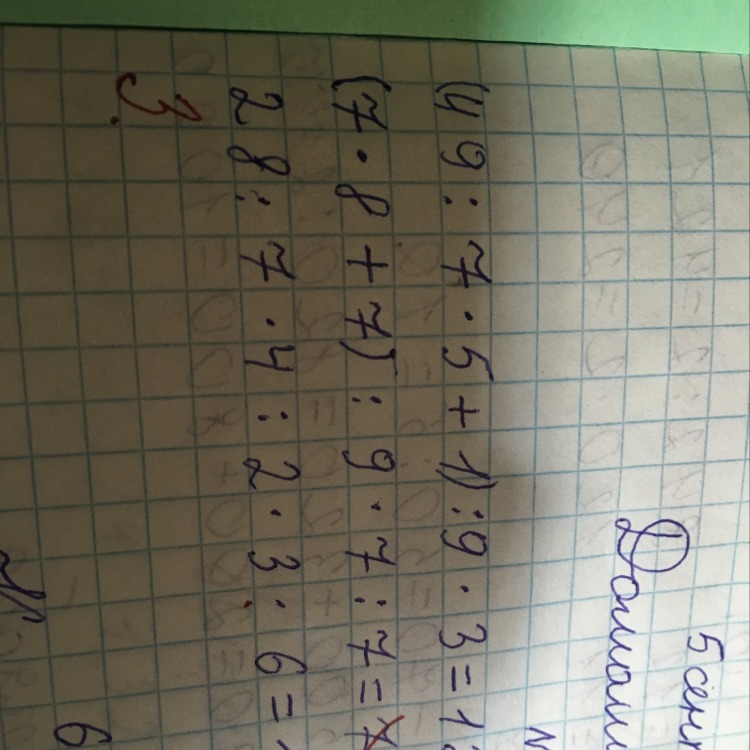 5 сент
Домаш
N
(49 : 7 · 5 + 1) : 9 · 3 = 1
(7 · 8 + 7) : 9 · 7 : 7 = 7
28 : 7 · 4 : 2 · 3 : 6 =
3.
6